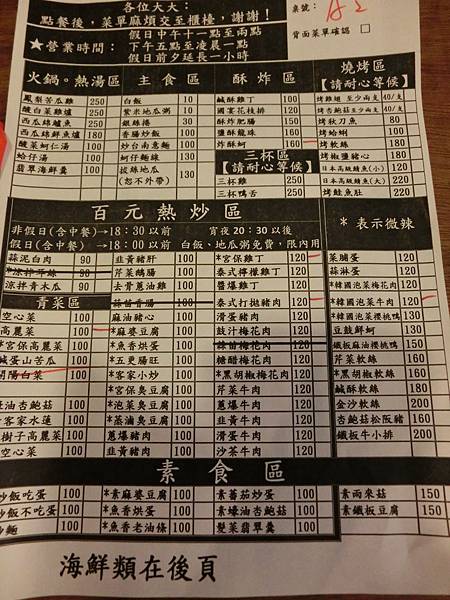 各位大大：
點餐後，菜單麻煩交至櫃檯，謝謝！
桌號：A2
背面菜單確認 □
★營業時間：
假日中午十一點至兩點
下午五點至凌晨一點
假日前夕延長一小時
火鍋。熱湯區
鳳梨苦瓜雞 250
酸白菜雞爐 250
西瓜綿鱸魚 250
西瓜綿鮮魚湯 180
酸菜蚵仁湯 100
蛤仔湯 100
翡翠海鮮羹 100
主食區
白飯 10
紫米地瓜粥 10
銀絲捲 30
香腸炒飯 100
炒台南意麵 100
蚵仔麵線 130
拔絲地瓜 130
(恕不外帶)
酥炸區
鹹酥雞丁 100
國宴花枝排 100
酥炸肥腸 150
鹽酥龍珠 160
炸酥蚵 160
三杯區
【請耐心等候】
三杯雞 250
三杯鴨舌 250
燒烤區
【請耐心等候】
烤雞翅 至少兩支 40/支
烤杏鮑菇至少兩支 40/支
烤秋刀魚 80
烤蛤蜊 100
烤軟絲 180
烤椒鹽豬心 180
日本高級鯖魚(小) 120
日本高級鯖魚(大) 220
烤鮭魚肚 220
百元熱炒區
非假日(含中餐)→18:30以前
假日(含中餐)→18:00以前
宵夜20:30以後
白飯、地瓜粥免費，限內用
*表示微辣
蒜泥白肉 90
*涼拌牛筋 90
涼拌青木瓜 90
青菜區
空心菜 100
高麗菜 100
*宮保高麗菜 100
鹹蛋山苦瓜 100
開陽白菜 100
蠔油杏鮑菇 100
客家水蓮 100
樹子高麗菜 100
空心菜 100
韭黃豬肝 100
芹菜鵝腸 100
去骨蔥油雞 100
蒜苗香腸 100
麻油豬心 100
*麻婆豆腐 100
*魚香烘蛋 100
*五更腸旺 100
*客家小炒 100
*宮保臭豆腐 100
*泡菜臭豆腐 100
*蒸滷臭豆腐 100
蔥爆豬肉 100
韭黃豬肉 100
*宮保雞丁 120
泰式椰雞丁 120
醬爆雞丁 120
泰式打拋豬肉 120
滑蛋豬肉 120
豉汁梅花肉 120
蒜苗梅花肉 120
糖醋梅花肉 120
*黑胡椒梅花肉 120
芹菜牛肉 120
蔥爆牛肉 120
韭黃牛肉 120
滑蛋牛肉 120
沙茶牛肉 120
菜脯蛋 120
蒜淋蛋 120
*韓國泡菜梅花肉 120
*韓國泡菜牛肉 120
*韓國泡菜軟絲 130
豆豉鮮蚵 130
鐵板麻油櫻桃鴨 150
芹菜軟絲 160
*黑胡椒軟絲 160
鹹酥軟絲 180
金沙軟絲 160
杏鮑菇松阪豬 160
鐵板牛小排 200
素食區
炒飯吃蛋 100
炒飯不吃蛋 100
炒麵 100
*素麻婆豆腐 100
*魚香烘蛋 100
*魚香老油條 100
素蕃茄炒蛋 100
素蠔油杏鮑菇 100
髮菜翡翠羹 100
素兩來菇 150
素鐵板豆腐 150
海鮮類在後頁